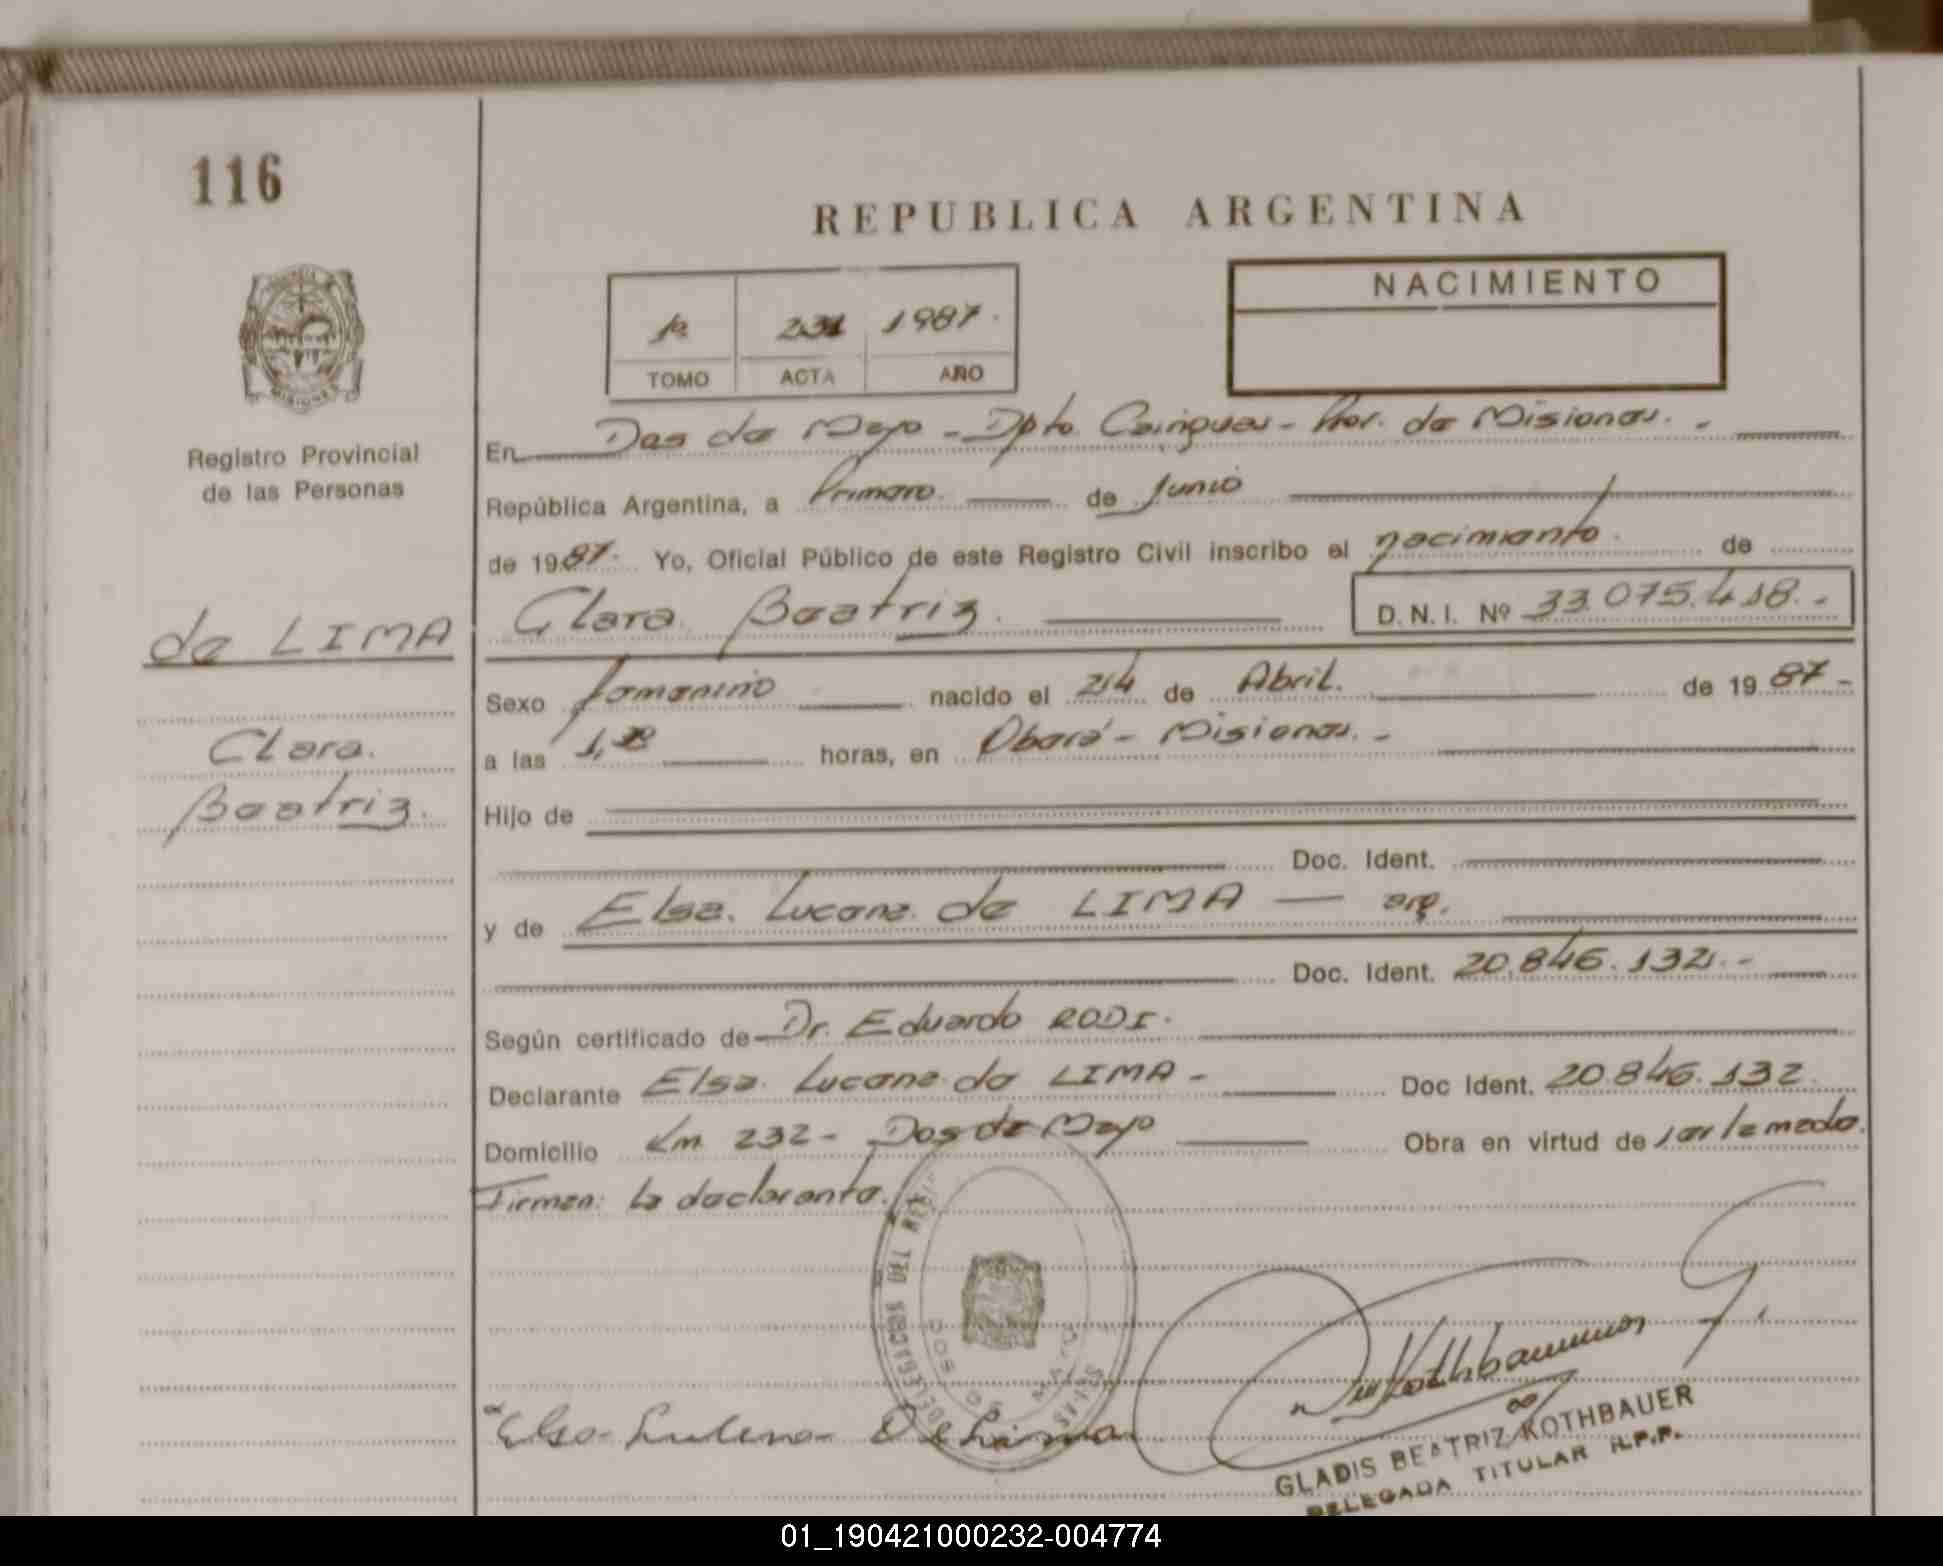 116
REPUBLICA ARGENTINA
NACIMIENTO
1º 231 1987.
TOMO ACTA AÑO
MISIONES
Registro Provincial
de las Personas
En Dos de Mayo - Dpto. Cainguas - Prov. de Misiones. -
República Argentina, a Primero. de Junio
de 1987. Yo, Oficial Público de este Registro Civil inscribo el nacimiento. de
Clara Beatriz. D.N.I. Nº 33.075.418. -
de LIMA
Clara.
Beatriz.
Sexo femenino nacido el 24 de Abril. de 1987 -
a las horas, en Oberá - Misiones. -
Hijo de
Doc. Ident.
y de Elsa. Lucena. de LIMA — arg.
Doc. Ident. 20.846.132. -
Según certificado de Dr. Eduardo RODI.
Declarante Elsa. Lucena. de LIMA - Doc Ident. 20.846.132
Domicilio Km 232 - Dos de Mayo Obra en virtud de
Firman: la declarante.
DELEGADA TITULAR DEL REG.
DOS DE MAYO
Elsa Lucena De Lima
Kothbauer
GLADIS BEATRIZ KOTHBAUER
DELEGADA TITULAR R.P.P.
01_190421000232-004774